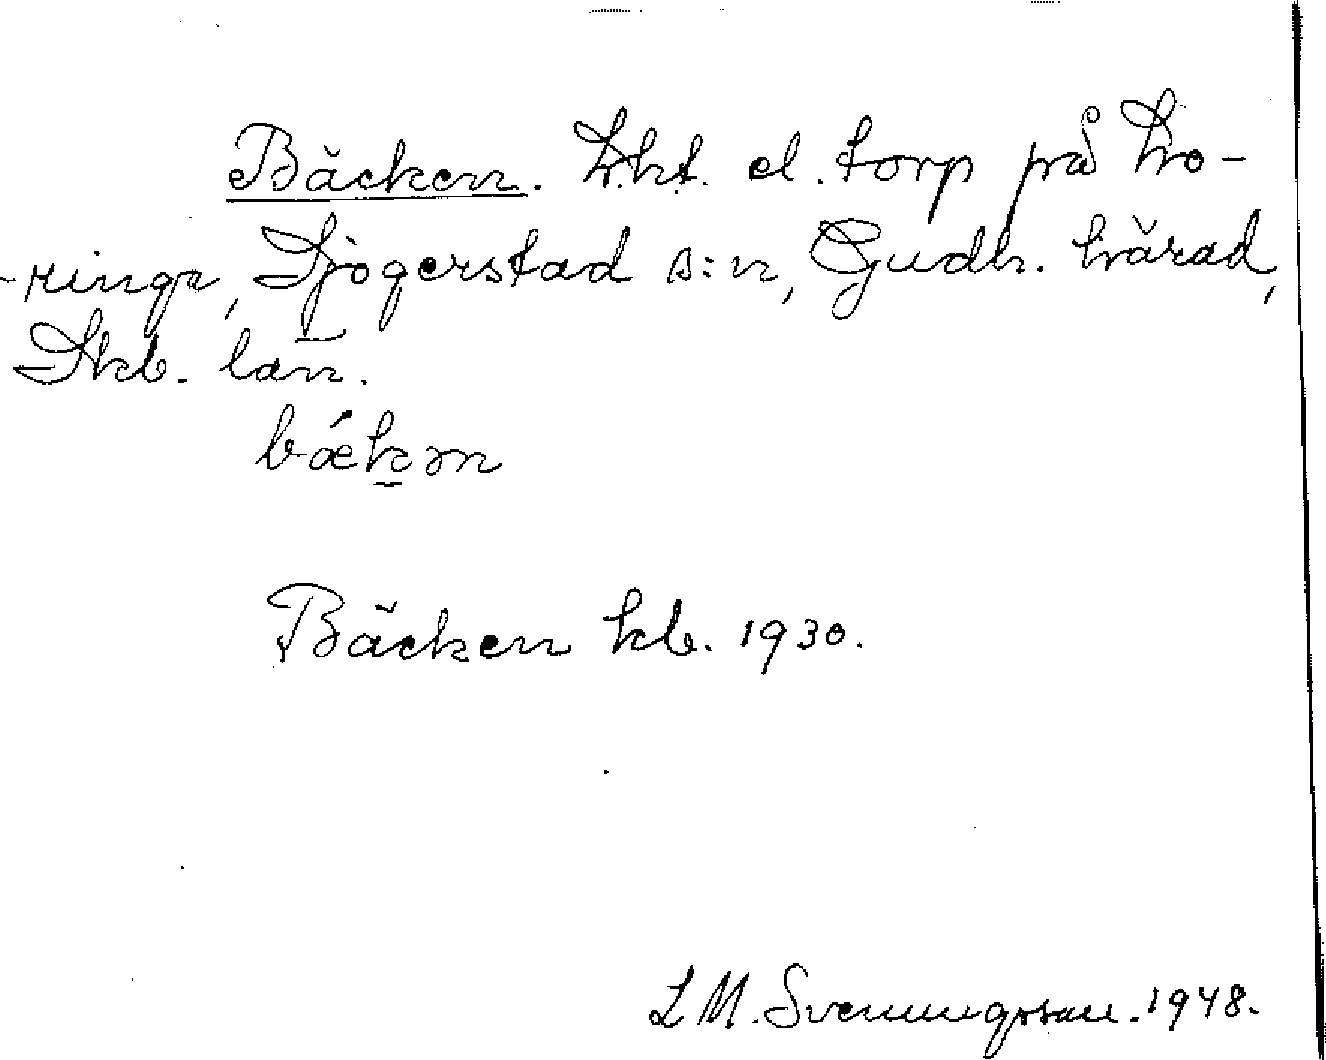 Bäcken. Lht. el. torp på Ho-
-ringa, Sjogerstad s:n, Gudh. härad,
Skb. län.
bǽkən
Bäcken kb. 1930.
L M. Svenungsson. 1948.